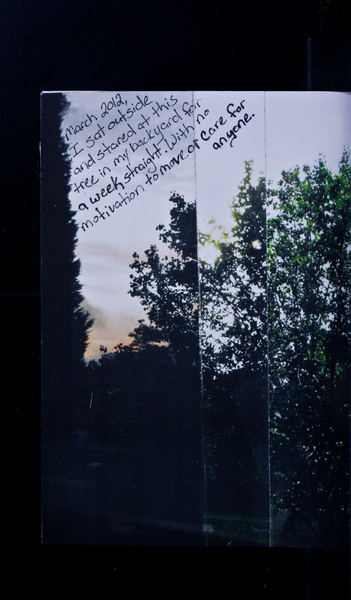 March 2012,
I sat outside
and stared at this
tree in my backyard for
a week straight. With no
motivation to move or care for
anyone.